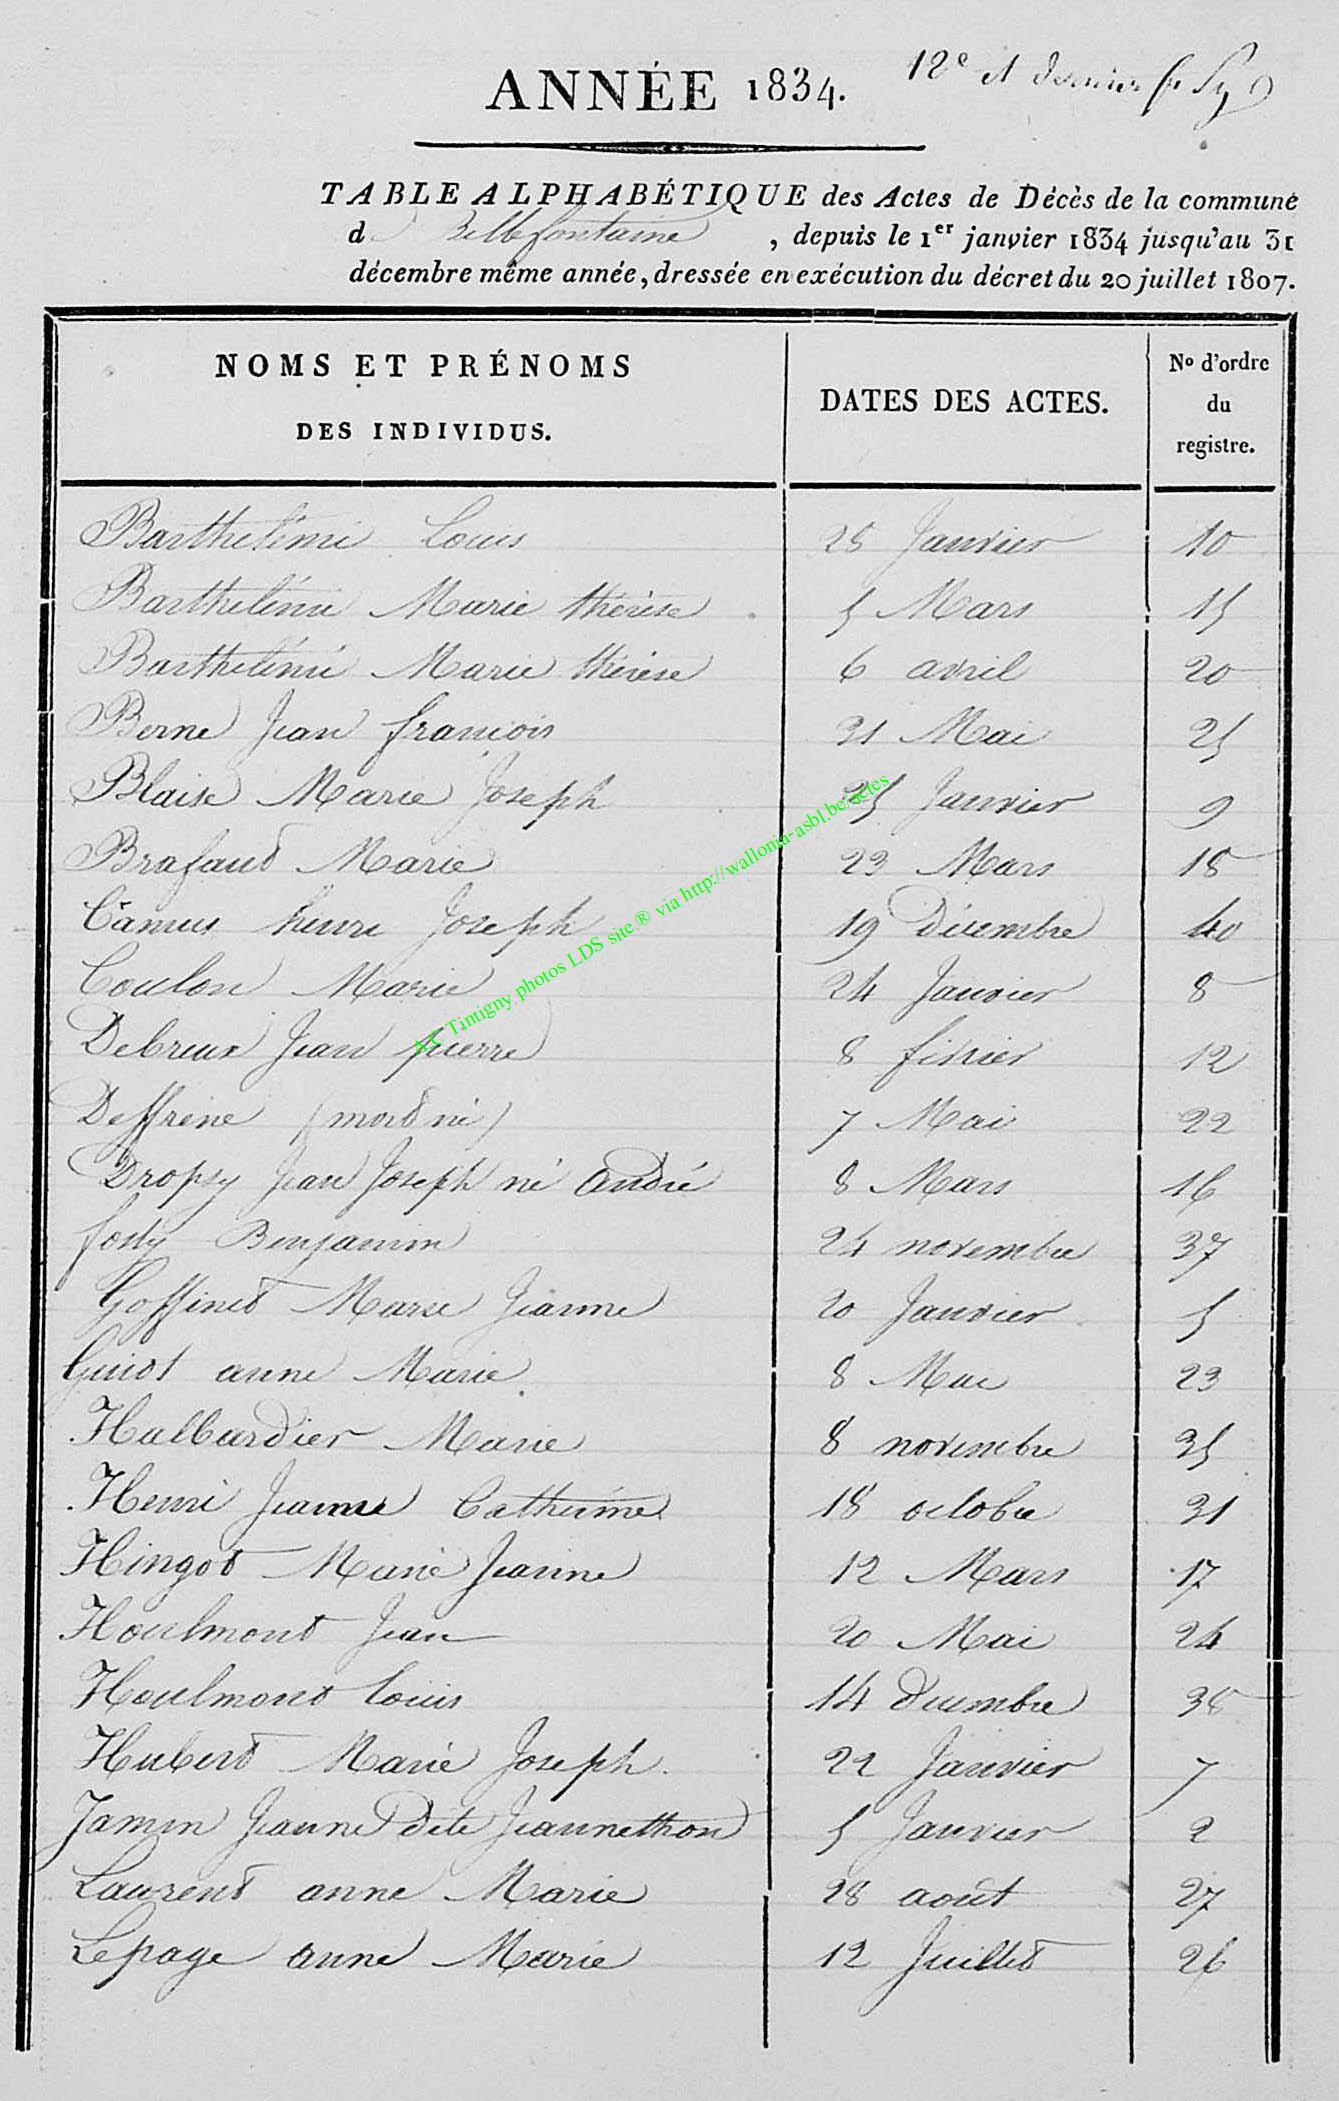 12e et dernier f
ANNÉE 1834.
TABLE ALPHABÉTIQUE des Actes de Décès de la commune
d Bellefontaine, depuis le 1er janvier 1834 jusqu'au 31
décembre même année, dressée en exécution du décret du 20 juillet 1807.
NOMS ET PRÉNOMS
DES INDIVIDUS.
DATES DES ACTES.
No d'ordre
du
registre.
Barthelémi Louis 28 Janvier 10
Barthelémi Marie thérèse 5 Mars 15
Barthelémi Marie thérèse 6 avril 20
Berne Jean françois 31 Mai 25
Blaise Marie Joseph 25 Janvier 9
Brafaud Marie 23 Mars 18
Camus henri Joseph 19 Décembre 40
Coulon Marie 24 Janvier 8
Debreux Jean pierre 8 février 12
Deffrene (mort né) 7 Mai 22
Dropsy Jean Joseph né André 8 Mars 16
fosty Benjamin 24 novembre 37
Goffinet Marie Jeanne 20 Janvier 5
Guiot anne Marie 8 Mai 23
Halbardier Marie 8 novembre 35
Henri Jeanne Catherine 18 octobre 31
Hingot Marie Jeanne 12 Mars 17
Houlmont Jean 20 Mai 24
Houlmont Louis 14 décembre 38
Hubert Marie Joseph 22 Janvier 7
Jamin Jeanne dite Jeannethon 5 Janvier 2
Laurent anne Marie 28 août 27
Lepage anne Marie 12 Juillet 26
AC Tintigny photos LDS site ® via http://wallonia-asbl.be/actes